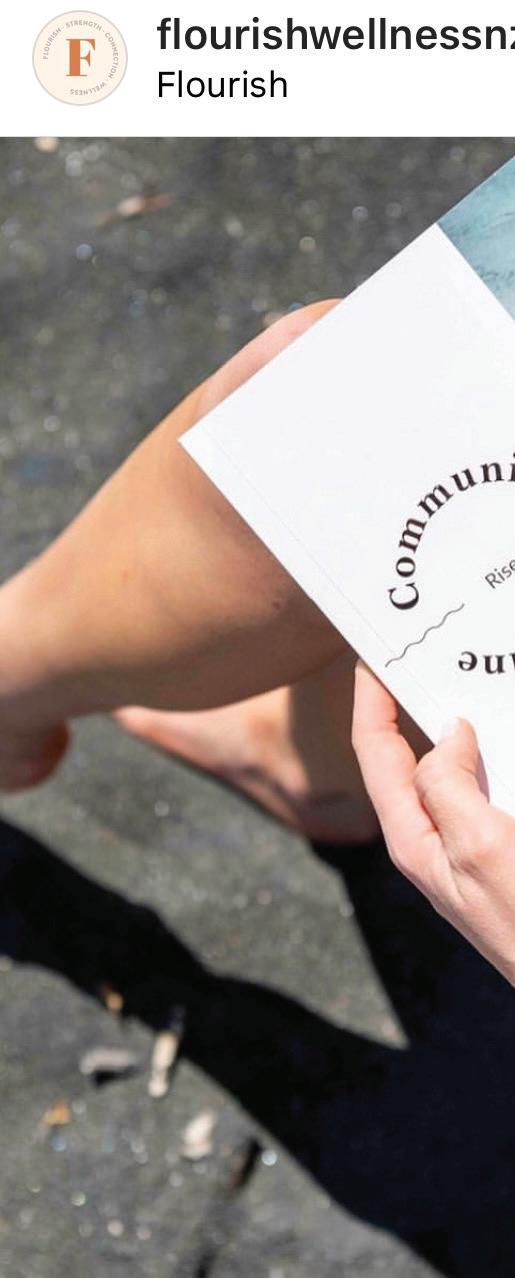 FLOURISH · STRENGTH · CONNECTION · WELLNESS
F
flourishwellnessnz
Flourish
Communi
Rise
une